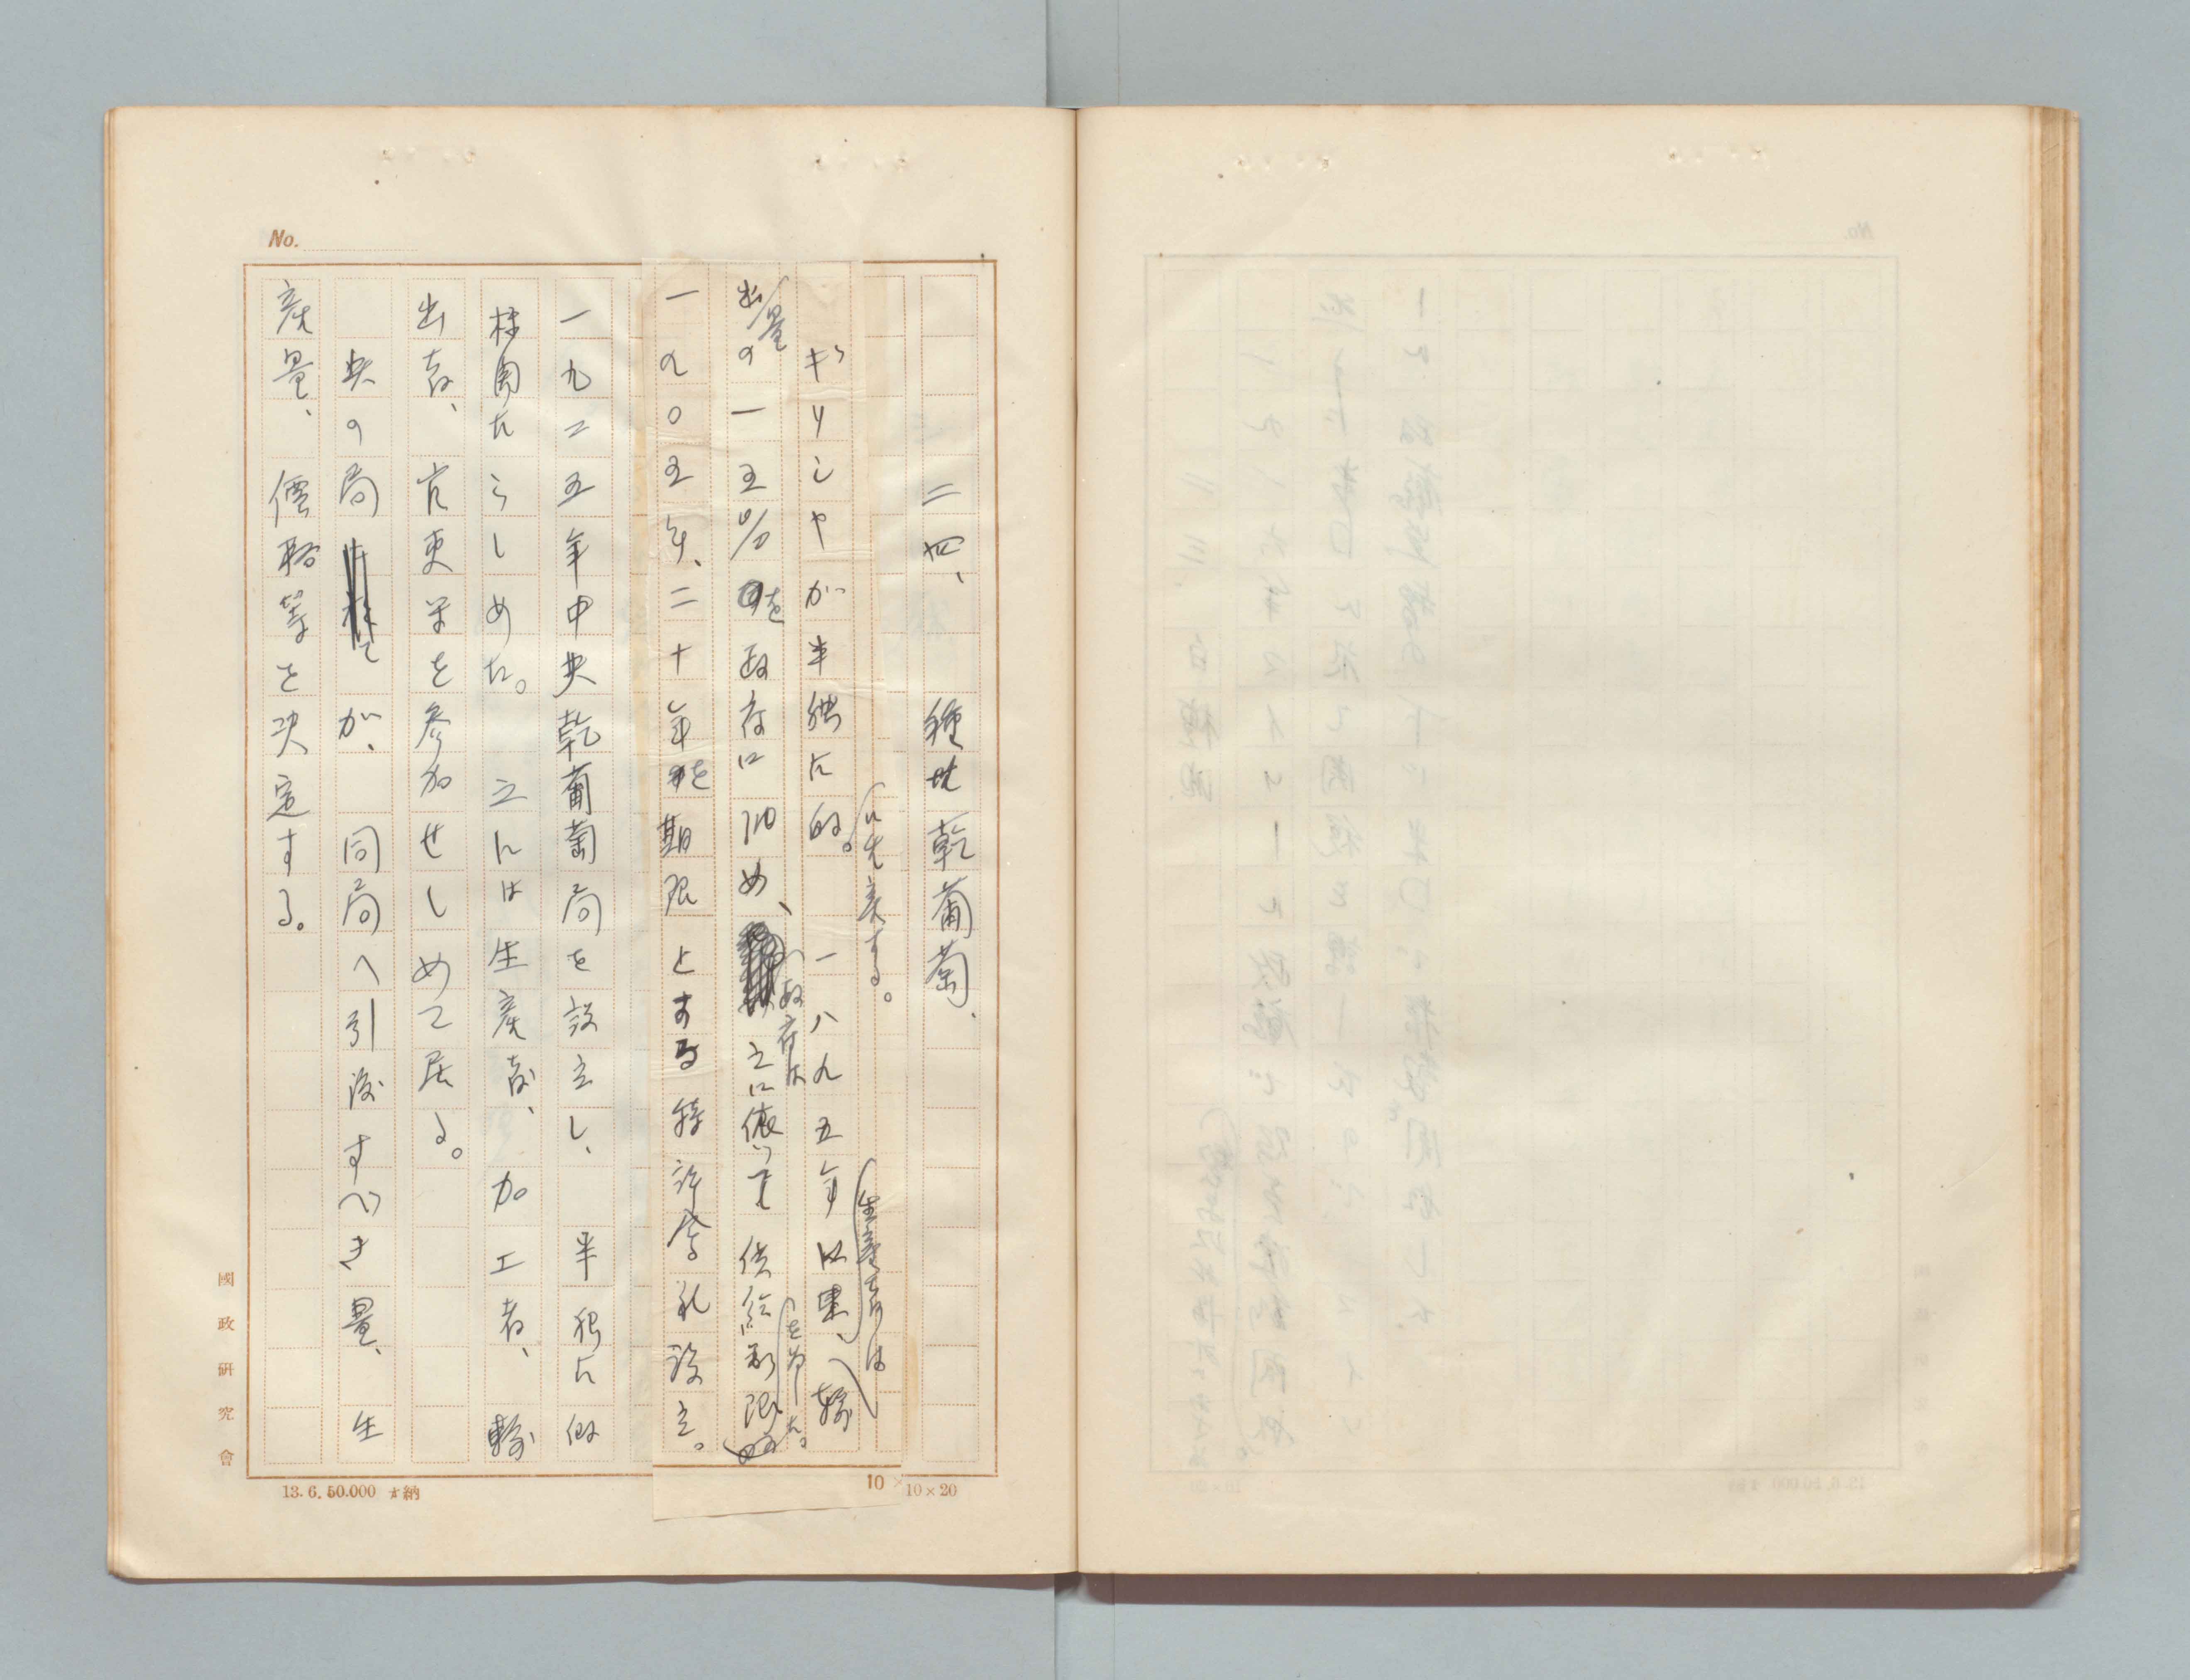 No.
二四、種抜乾葡萄、
に先売する。
生産者は
ギリシヤが半独占的。一八九五年以来、輸
出量の一五%を政府に収め、之に依つて供給制限
政府は
を命じた。
一九〇五年、二十年を期限とする特許会社設立。
一九二五年中央乾葡萄局を設立し、半独占的
株国たらしめた。之には生産者、加工者、輸
出者、官吏等を参加せしめて居る。
央の局が、同局へ引渡すべき量、生
産量、価格等を決定する。
國政研究會
13. 6. 50.000 納
10 ×
10×20